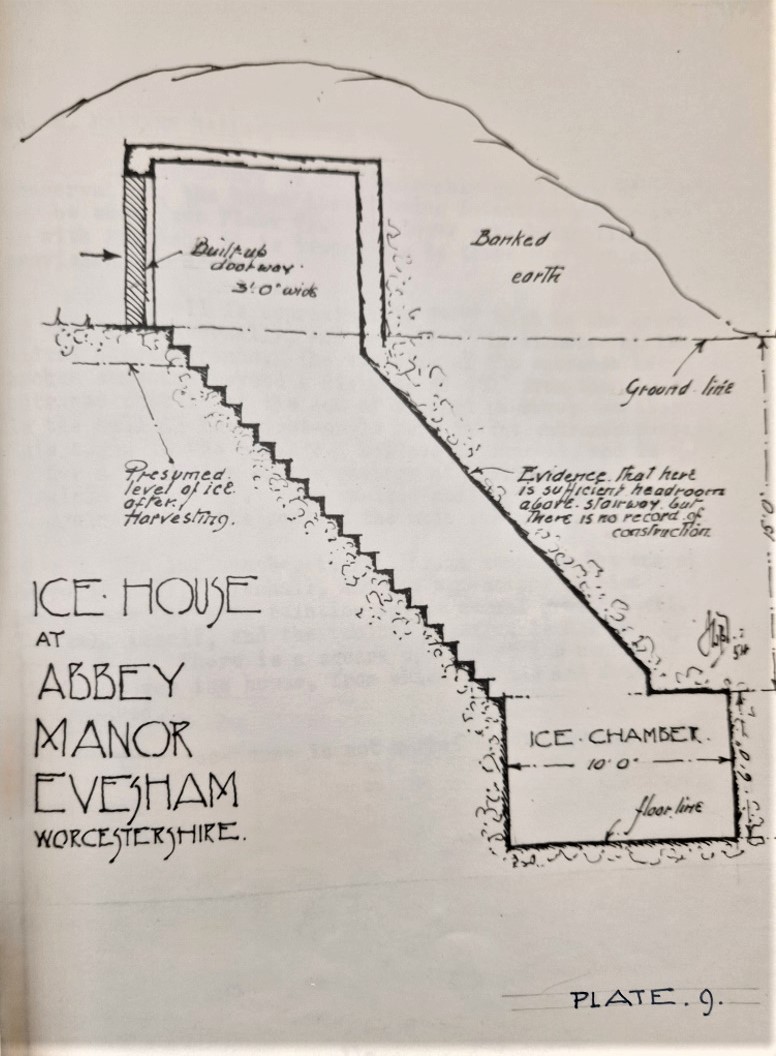 Banked
earth
Built-up
doorway.
3'.0" wide
Ground line
Presumed
level of ice
after
Harvesting.
Evidence that here
is sufficient headroom
above stairway but
There is no record of
construction
ICE HOUSE
AT
ABBEY
MANOR
EVESHAM
WORCESTERSHIRE.
ICE. CHAMBER.
10'.0"
floor line
PLATE. 9.